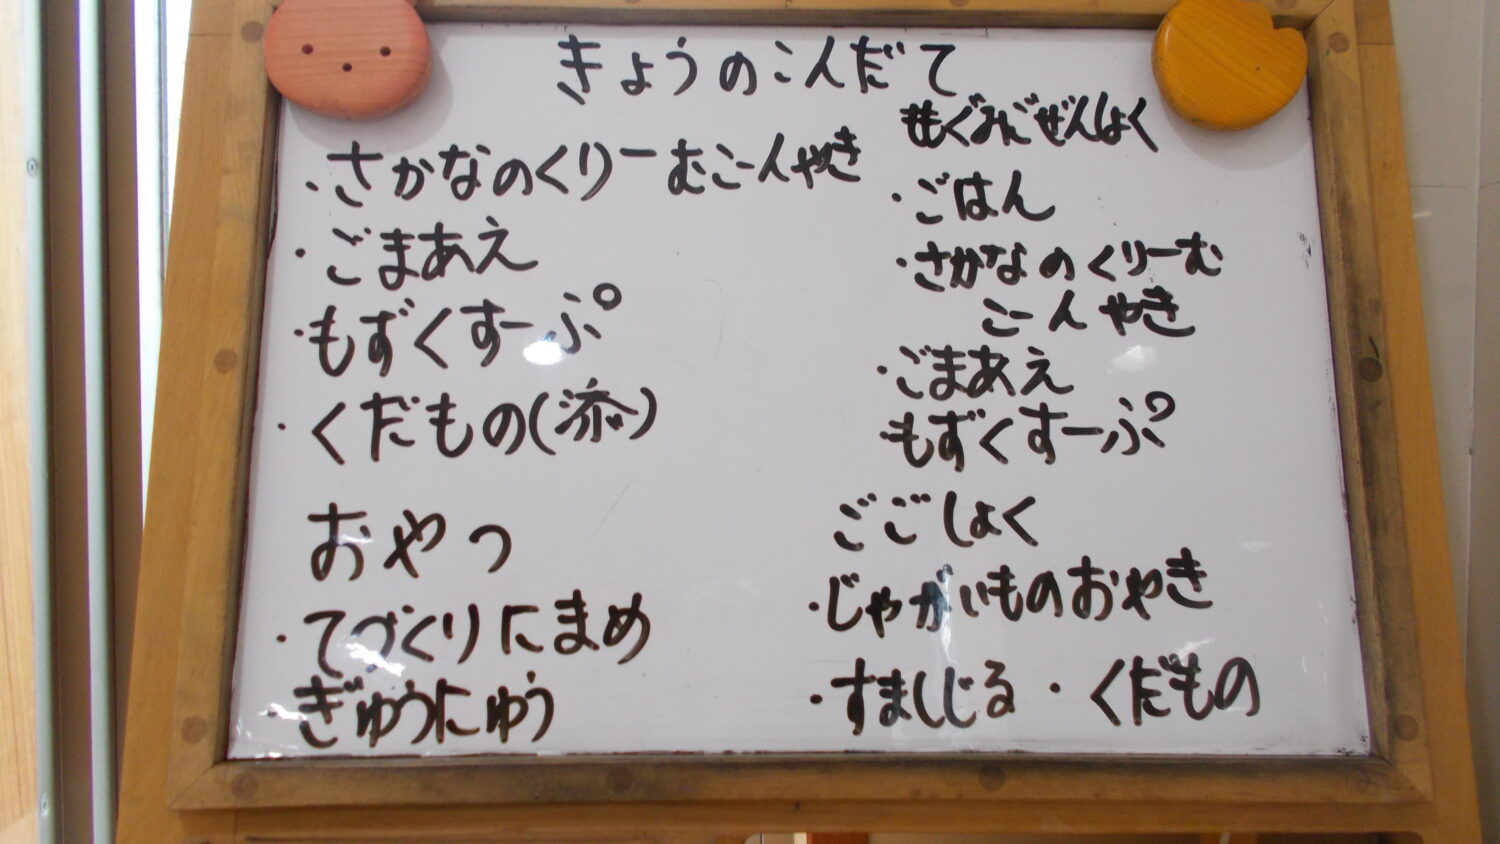 きょうのこんだて
・さかなのくりーむこーんやき
・ごまあえ
・もずくすーぷ
・くだもの(添)
おやつ
・てづくりにまめ
・ぎゅうにゅう
もぐみごぜんしょく
・ごはん
・さかなのくりーむ
こーんやき
・ごまあえ
・もずくすーぷ
ごごしょく
・じゃがいものおやき
・すましじる・くだもの